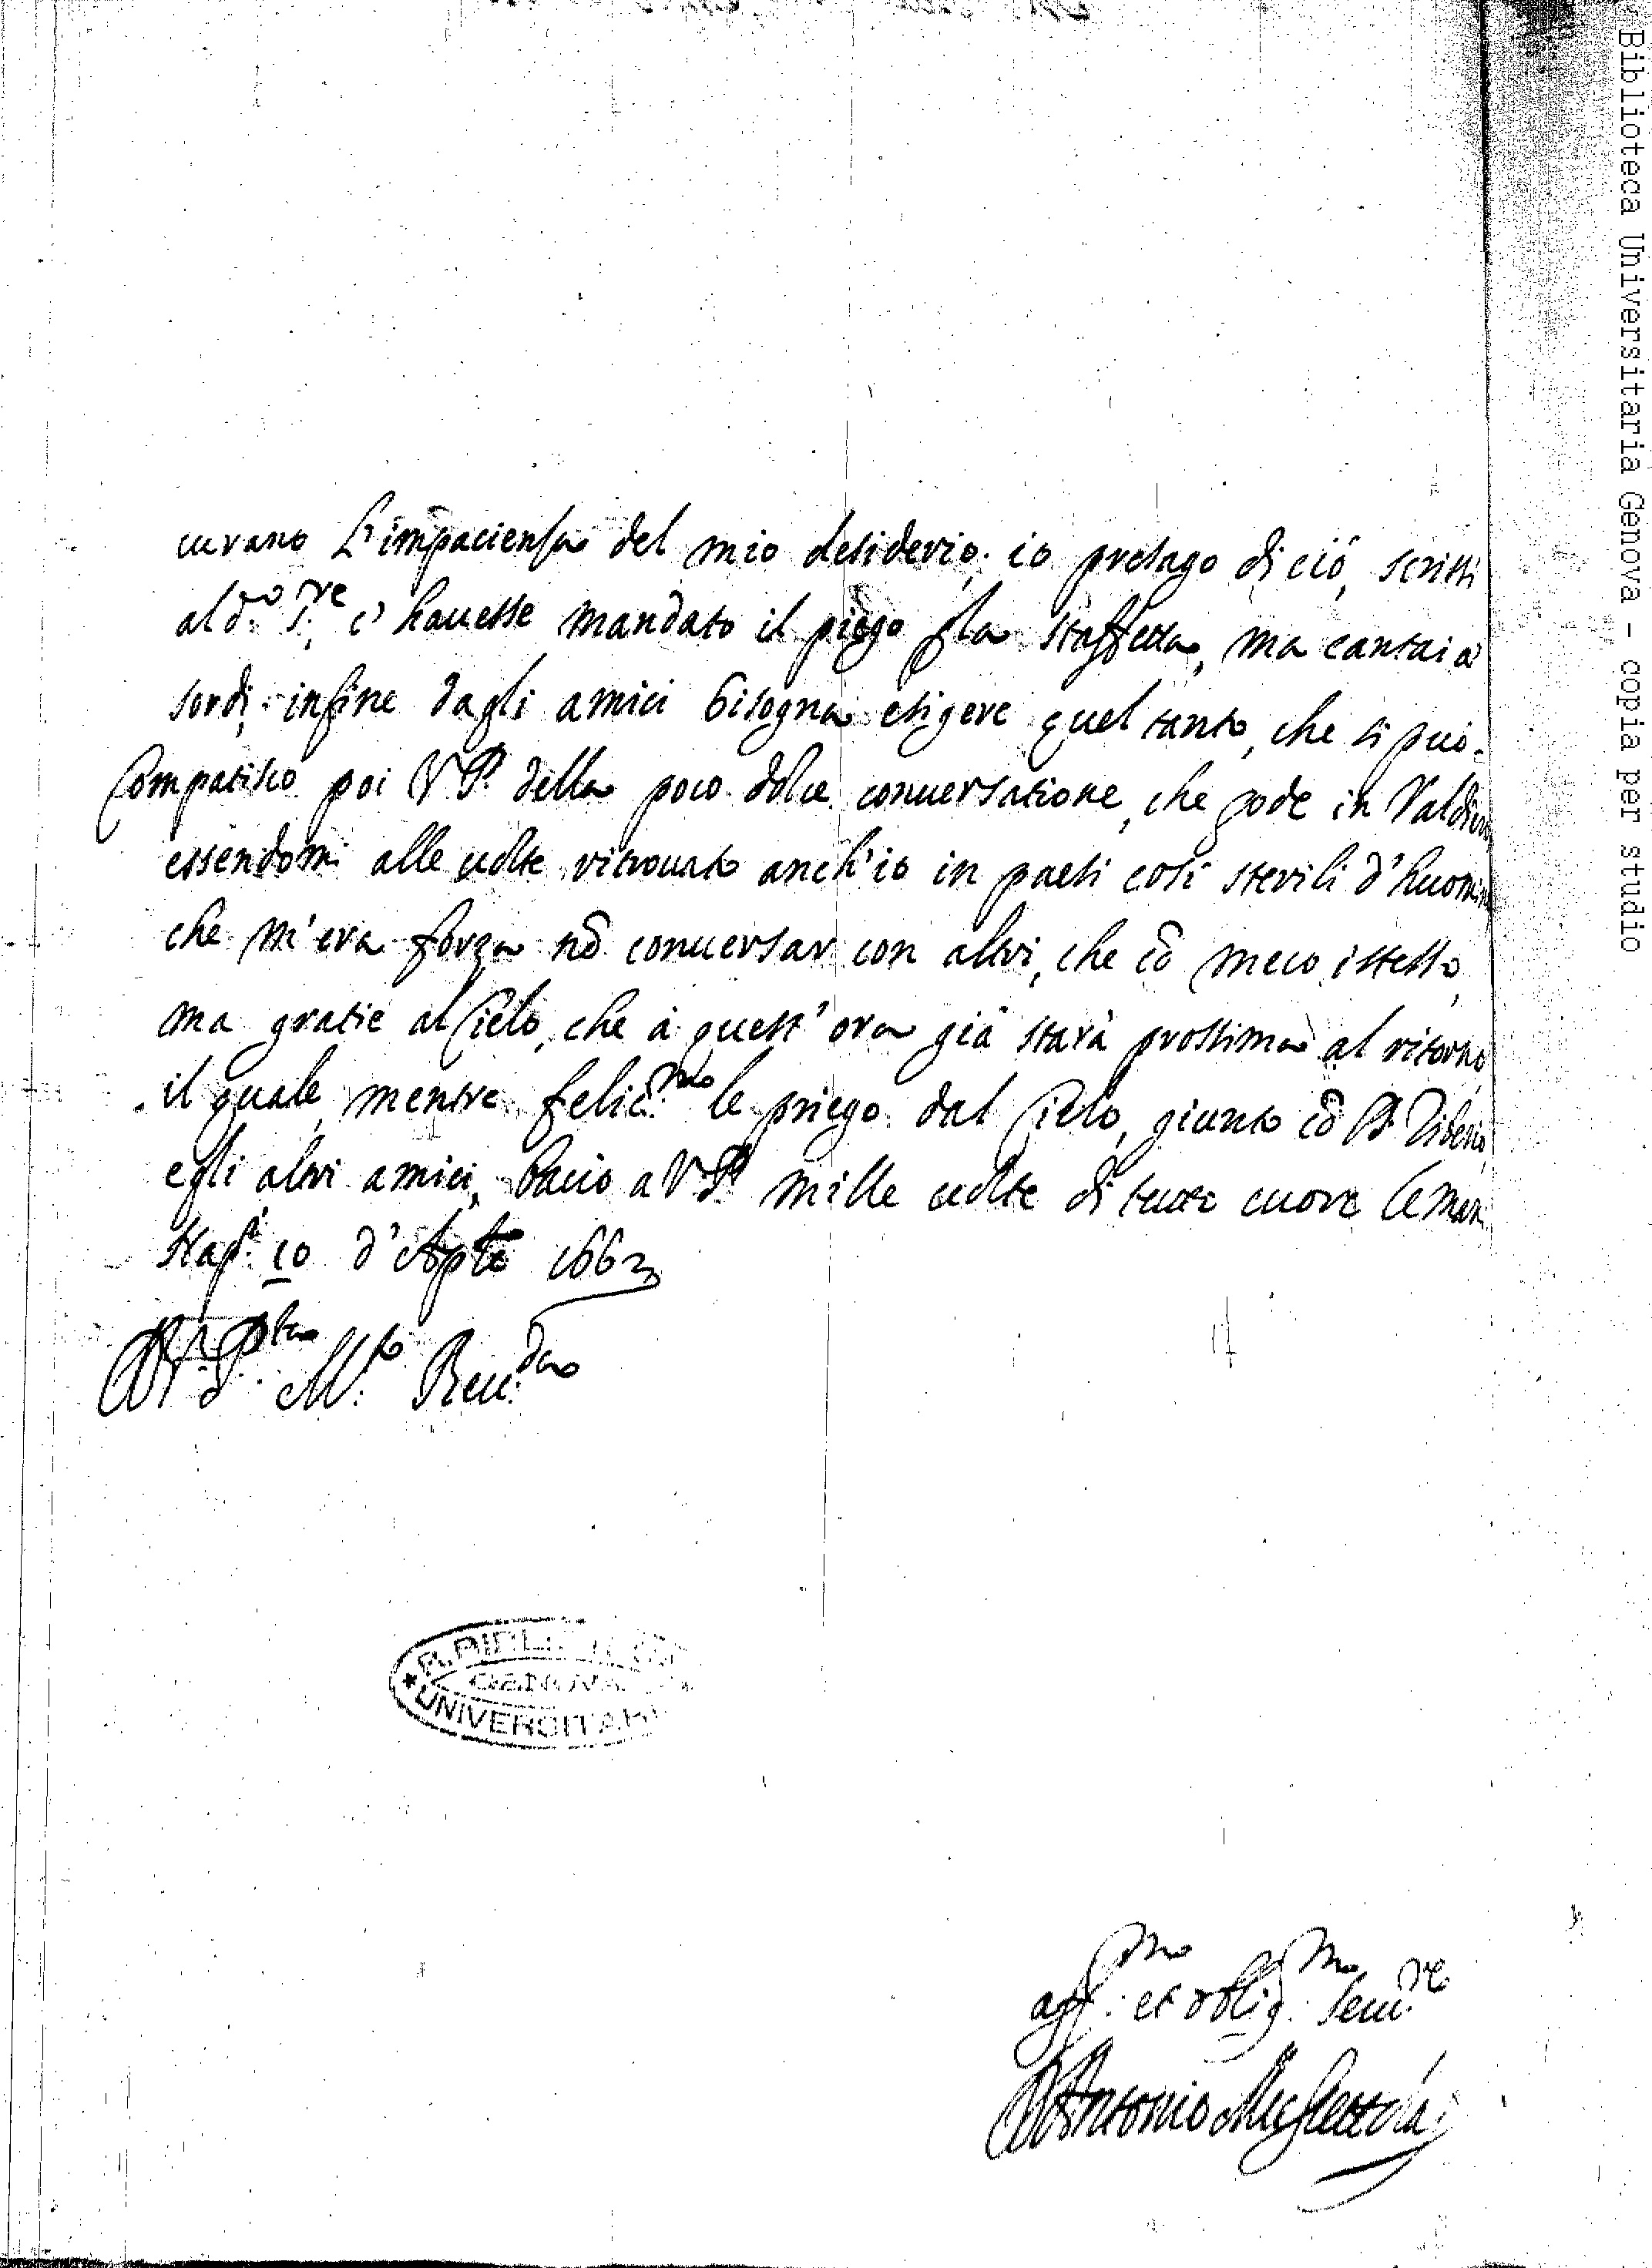 curano L'impacienza del mio desiderio. io presago di ciò, scrissi
al d.o S.re c'hauesse mandato il piego p la staffetta, ma cantai à
sordi. infine dagli amici bisogna esigere quel tanto, che si può.
Compatisco poi V.P. della poco dolce conuersatione, che gode in
essendomi alle uolte ritrouato anch'io in paesi così sterili d'huomini
che m'era forza nõ conuersar con altri, che cõ meco istesso,
ma gratie al Cielo, che à quest'ora già starà prossima al ritorno
il quale, mentre felic.mo le priego dal Cielo, giunto cõ
e gli altri amici, bacio a V.P. mille uolte di tutto cuore le mani
Nap. 10 d'Aple 1662
Di V. P.ta M.to Reu.da
R. BIBLIOTECA
GENOVA
UNIVERSITARIA
aff.mo et oblig.mo Seru.re
Antonio
Biblioteca Universitaria Genova - copia per studio